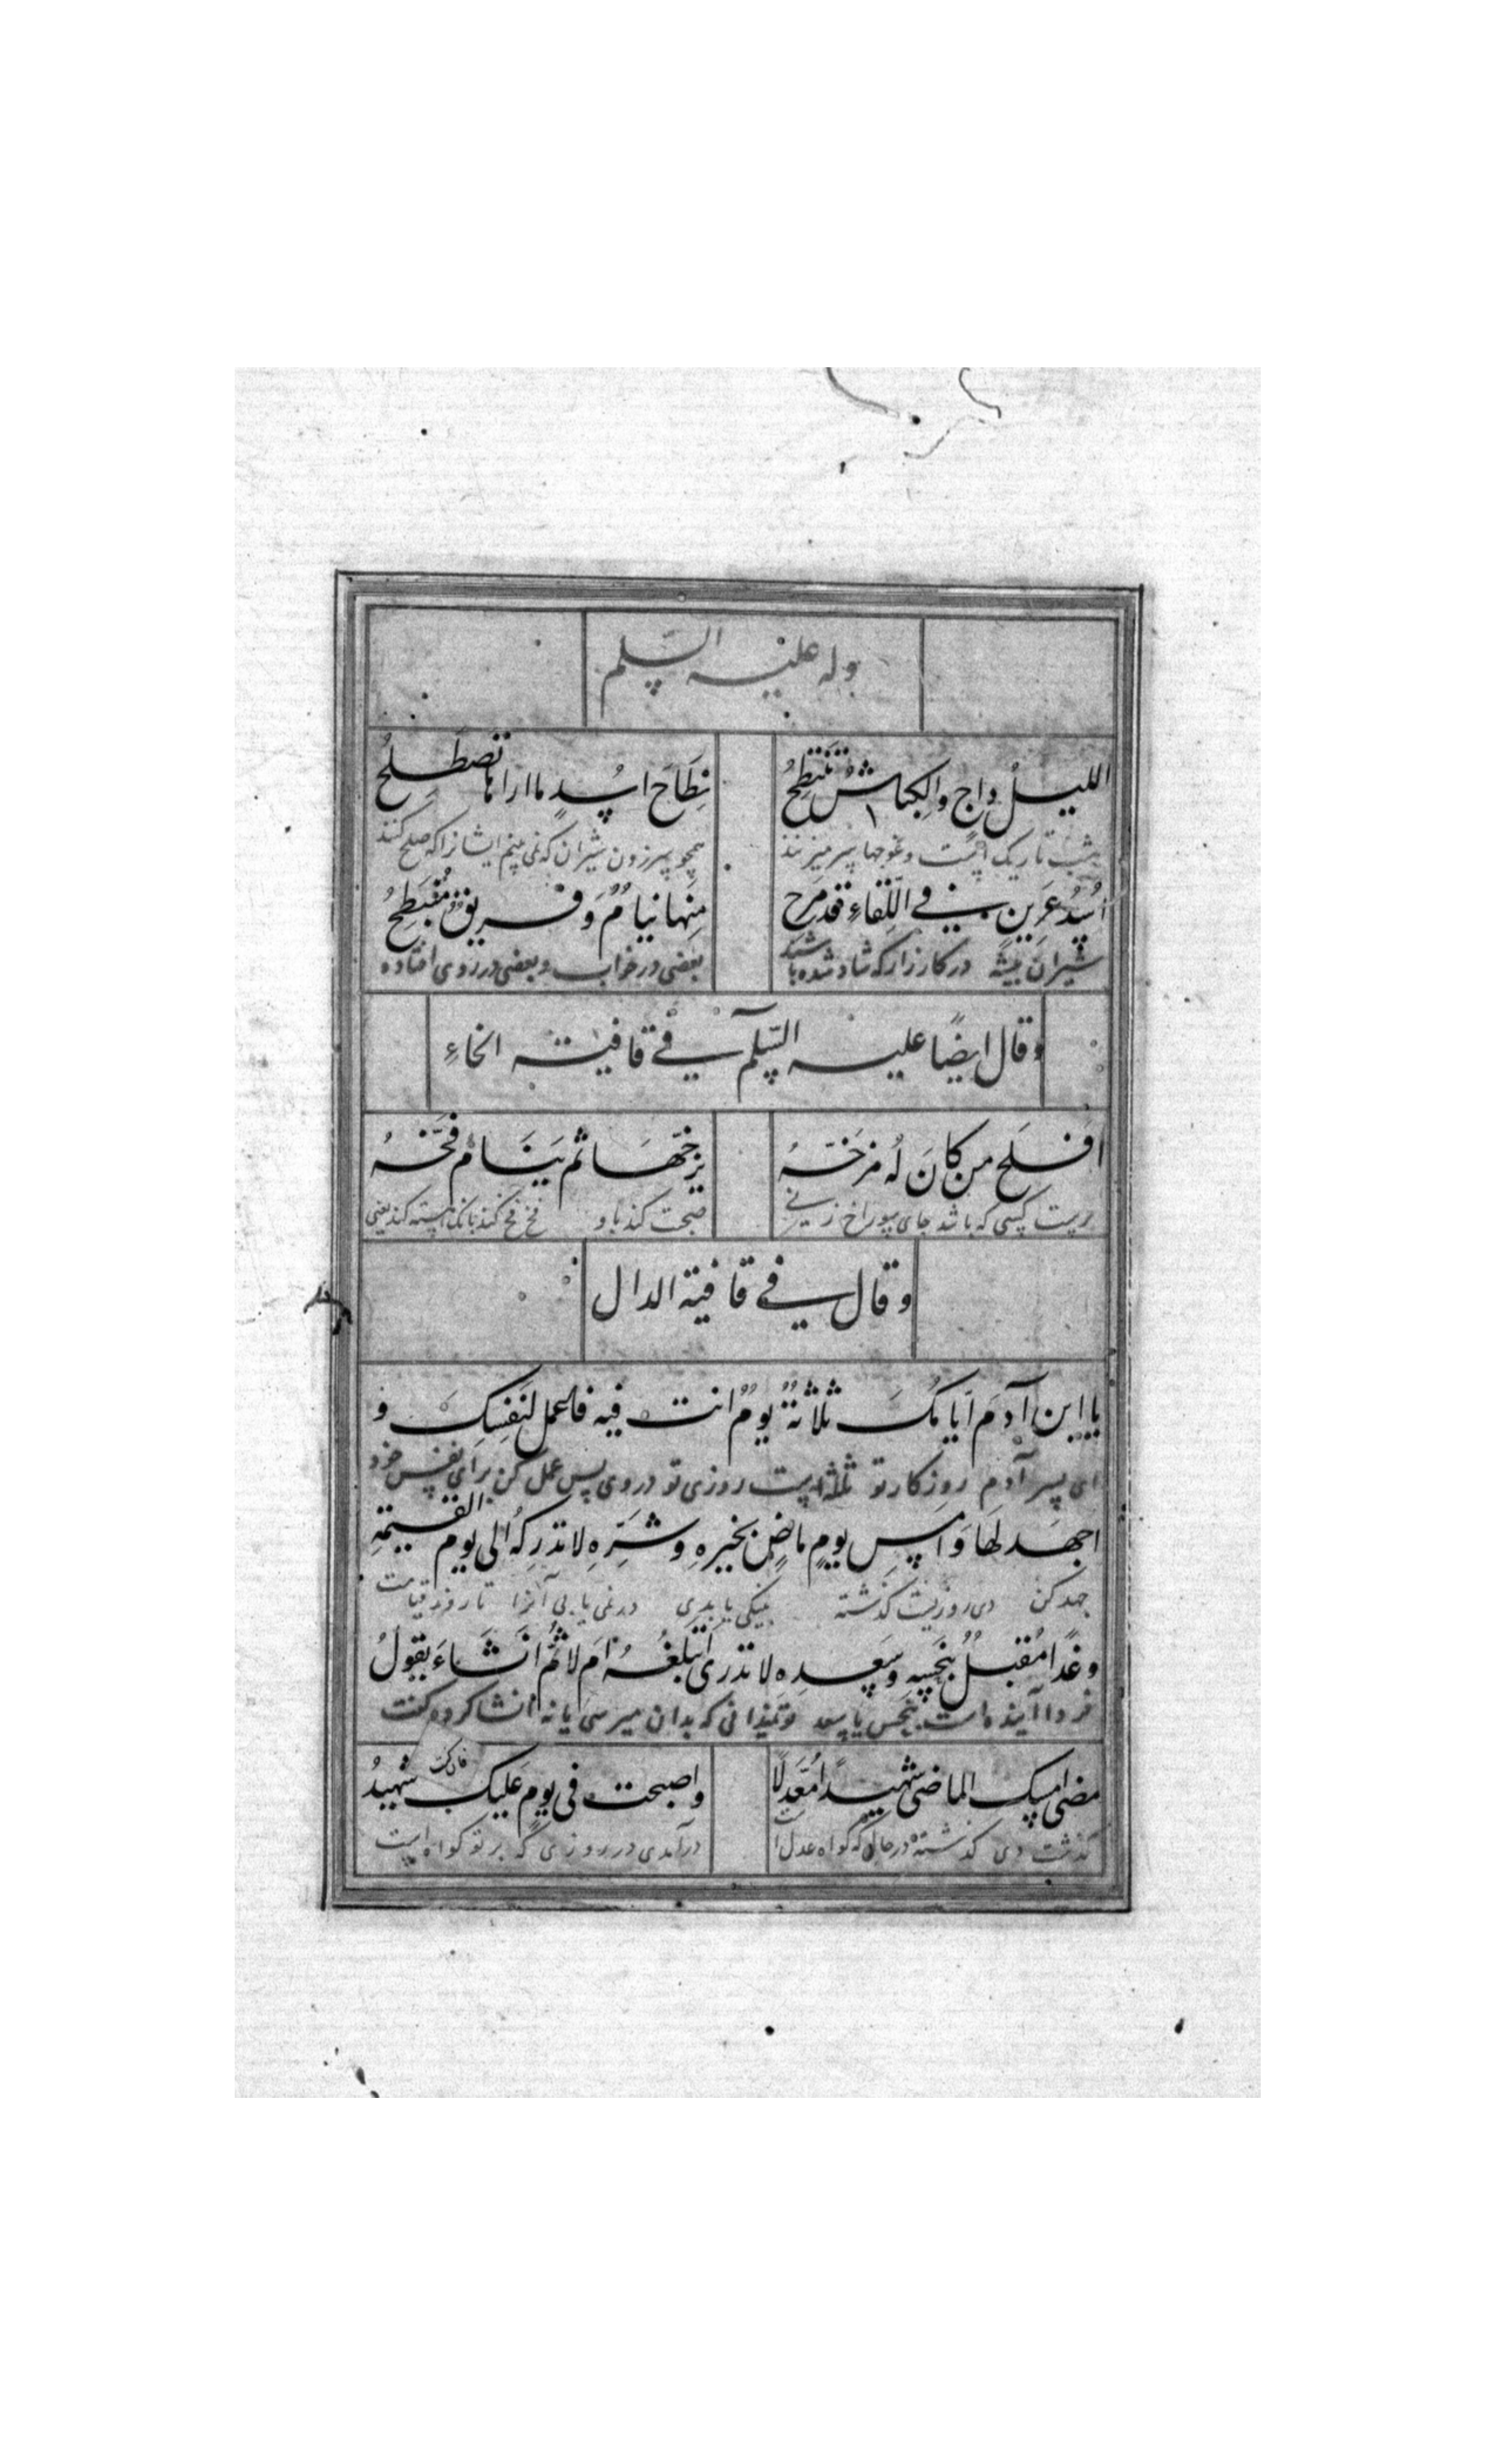 وله علیه السّلم
اللیلُ داجٍ والکِباشُ تَنتَطِحُ
نِطَاحَ اسُدٍ ما اراها تصطَلِحُ
شب تاریک است وغوجها سر میزنند
همچو سر زدن شیران که نمی بینم ایشانرا که صلح کنند
اُسْدُ عَرِینٍ فی اللِّقاءِ قد مَرِح
مِنها نیامٌ وَ فریقٌ مُنبَطِحُ
شیران بیشه در کارزار که شاد شده باشند
بعضی در خواب و بعضی در روی افتاده
وقال ایضًا علیه السّلم فی قافیة الخاءِ
افلَح من کانَ لهُ مزخّهُ
یزخّهَا ثم یَنَام فخّهُ
کسی که باشد جای سوراخ زنی
صحبت کند با و فخ فخ کند بانک
وقال فی قافیة الدال
یا ابن آدمَ ایامُکَ ثلاثةٌ یومٌ انت فیه فاعمل لنَفسِکِ و
ای پسر آدم روزکار تو ثلثه است روزی تو در وی پس عمل کن برای نفس خود
اجهَد لهَا وَ امسِ یومٍ ماضٍ بخیرهِ وشرِّهِ لا تدرِکهُ الی یوم القیمةِ
جهد کن دی روزیست کذشته بنیکی یا بدی در نمی یابی آنرا تا روز قیامت
وغدًا مُقبلٌ بنحسِهِ وسَعدِه لا تدری اَتبلغُهُ ام لا ثُمّ انشَاءَ یقولُ
فردا آینده است بنحس یا سعد تو نمیدانی که بدان میرسی یا نه انشا کرد و کفت
مضی امسک الماضی شهیدًا مُعَدَّلًا
واصبحت فی یومٍ علیک شهیدُ
کذشت دی کذشته در حالی که کواه عدل است
درآمدی در روزی که بر تو کواه است